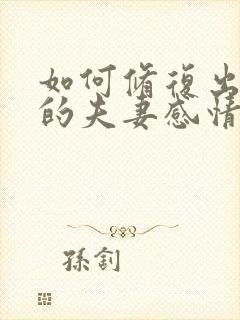 如何修復出
的夫妻感情
孫釗